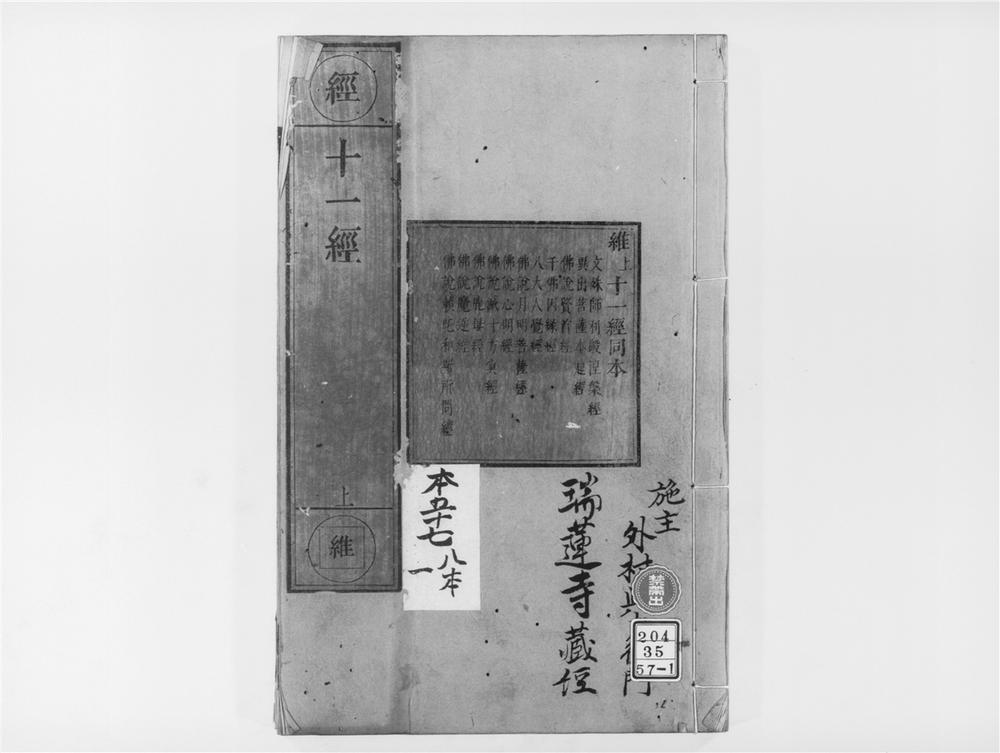 經
十一經
上
維
維上
十一經同本
文殊師利般涅槃經
異出菩薩本起經
佛說賢首經
千佛因緣經
八大人覺經
佛說月明菩薩經
佛說心明經
佛說滅十方冥經
佛說鹿母經
佛說魔逆經
佛說賴吒和羅所問經
本五十七
八本
一
施主
外村
門
瑞蓮寺藏經
禁帶出
204
35
57-1